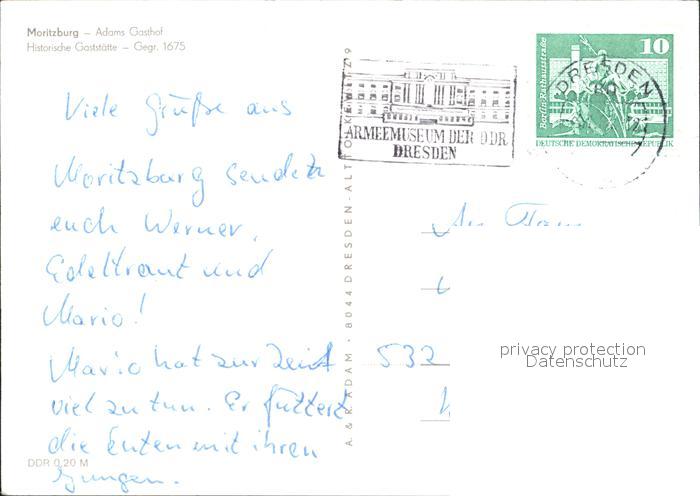 Moritzburg – Adams Gasthof
Historische Gaststätte – Gegr. 1675
Viele Grüße aus
Moritzburg senden
euch Werner,
Edeltraut und
Mario!
Mario hat zur Zeit
viel zu tun. Er füttert
die Enten mit ihren
Jungen.
DDR 0,20 M
A. & R. ADAM · 8044 DRESDEN-ALT
ARMEEMUSEUM DER DDR
DRESDEN
DRESDEN
10
Berlin, Rathausstraße
DEUTSCHE DEMOKRATISCHE REPUBLIK
An Fam
532
privacy protection
Datenschutz